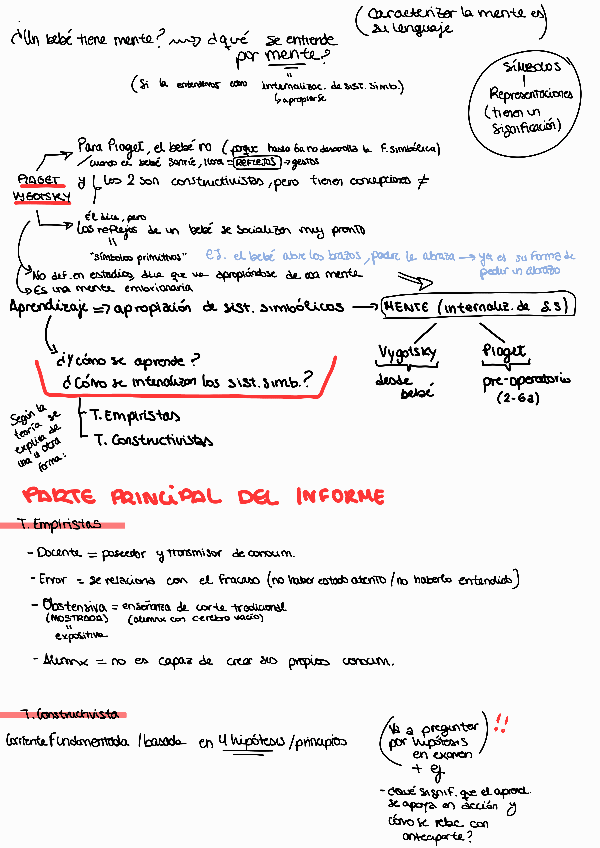 (Caracterizar la mente es)
su lenguaje
¿Un bebé tiene mente? ⟿ ¿qué se entiende
por mente?
(Si la entendemos como internalizac. de sist. simb.)
↳ apropiarse
SÍMBOLOS
Representaciones
(tienen un
significación)
Para Piaget, el bebé no (porque hasta 6a no desarrolla la F. simbólica)
/cuando el bebé sonríe, llora = REFLEJOS → gestos
PIAGET y Los 2 son constructivistas, pero tienen concepciones ≠
VYGOTSKY
Él dice, pero
Los reflejos de un bebé se socializan muy pronto
"símbolos primitivos" ej. el bebé abre los brazos, padre le abraza → ya es su forma de
pedir un abrazo
No def. en estadios, dice que va apropiándose de esa mente
Es una mente embrionaria
Aprendizaje => apropiación de sist. simbólicos → MENTE (internaliz. de S.S)
Vygotsky Piaget
desde pre-operatorio
bebé (2-6a)
¿Y cómo se aprende?
¿Cómo se internalizan los sist. simb.?
Según la
teoría se
explica de
una u otra
forma:
T. Empiristas
T. Constructivistas
PARTE PRINCIPAL DEL INFORME
T. Empiristas
- Docente = poseedor y transmisor de conocim.
- Error = se relaciona con el fracaso (no haber estado atento / no haberlo entendido)
- Obstensiva = enseñanza de corte tradicional
(MOSTRADA) (alumnx con cerebro vacío)
expositiva
- Alumnx = no es capaz de crear sus propios conocim.
T. Constructivista
Corriente fundamentada / basada en 4 hipótesis / principios
(Va a preguntar !!
por hipótesis
en examen
+ ej.
- ¿Qué signif. que el aprend.
se apoya en acción y
cómo se relac con
anteaparte?